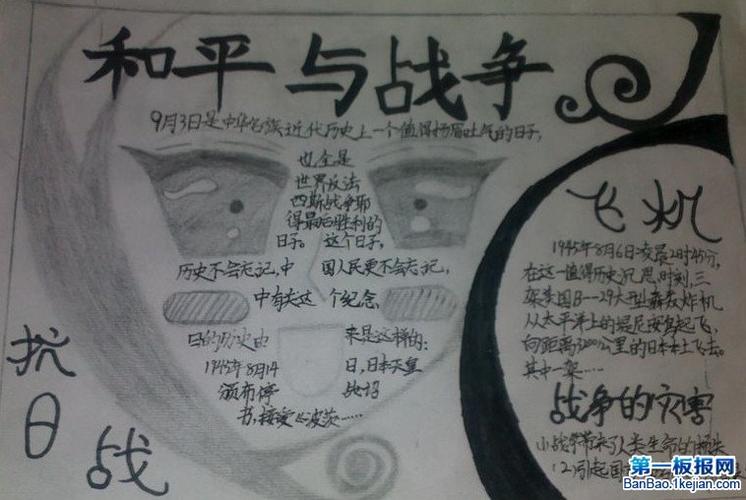 和平与战争
9月3日是中华民族近代历史上一个值得扬眉吐气的日子,
也全是
世界反法
西斯战争取
得最后胜利的
日子。这个日子,
历史不会忘记,中国人民更不会忘记,
中有关这个纪念
日的历史由来是这样的:
1945年8月14日,日本天皇
颁布停战诏
书,接受《波茨……
抗
日
战
飞机
1945年8月6日凌晨2时45分,
在这一值得历史沉思时刻,三
架美国B—29大型轰炸机
从太平洋上的提尼安岛起飞,
向距离3200公里的日本本土飞去。
其中一架……
战争的灾害
(1)战争带来了人类生命的损失
(2)引起国
第一板报网
BanBao.1kejian.com